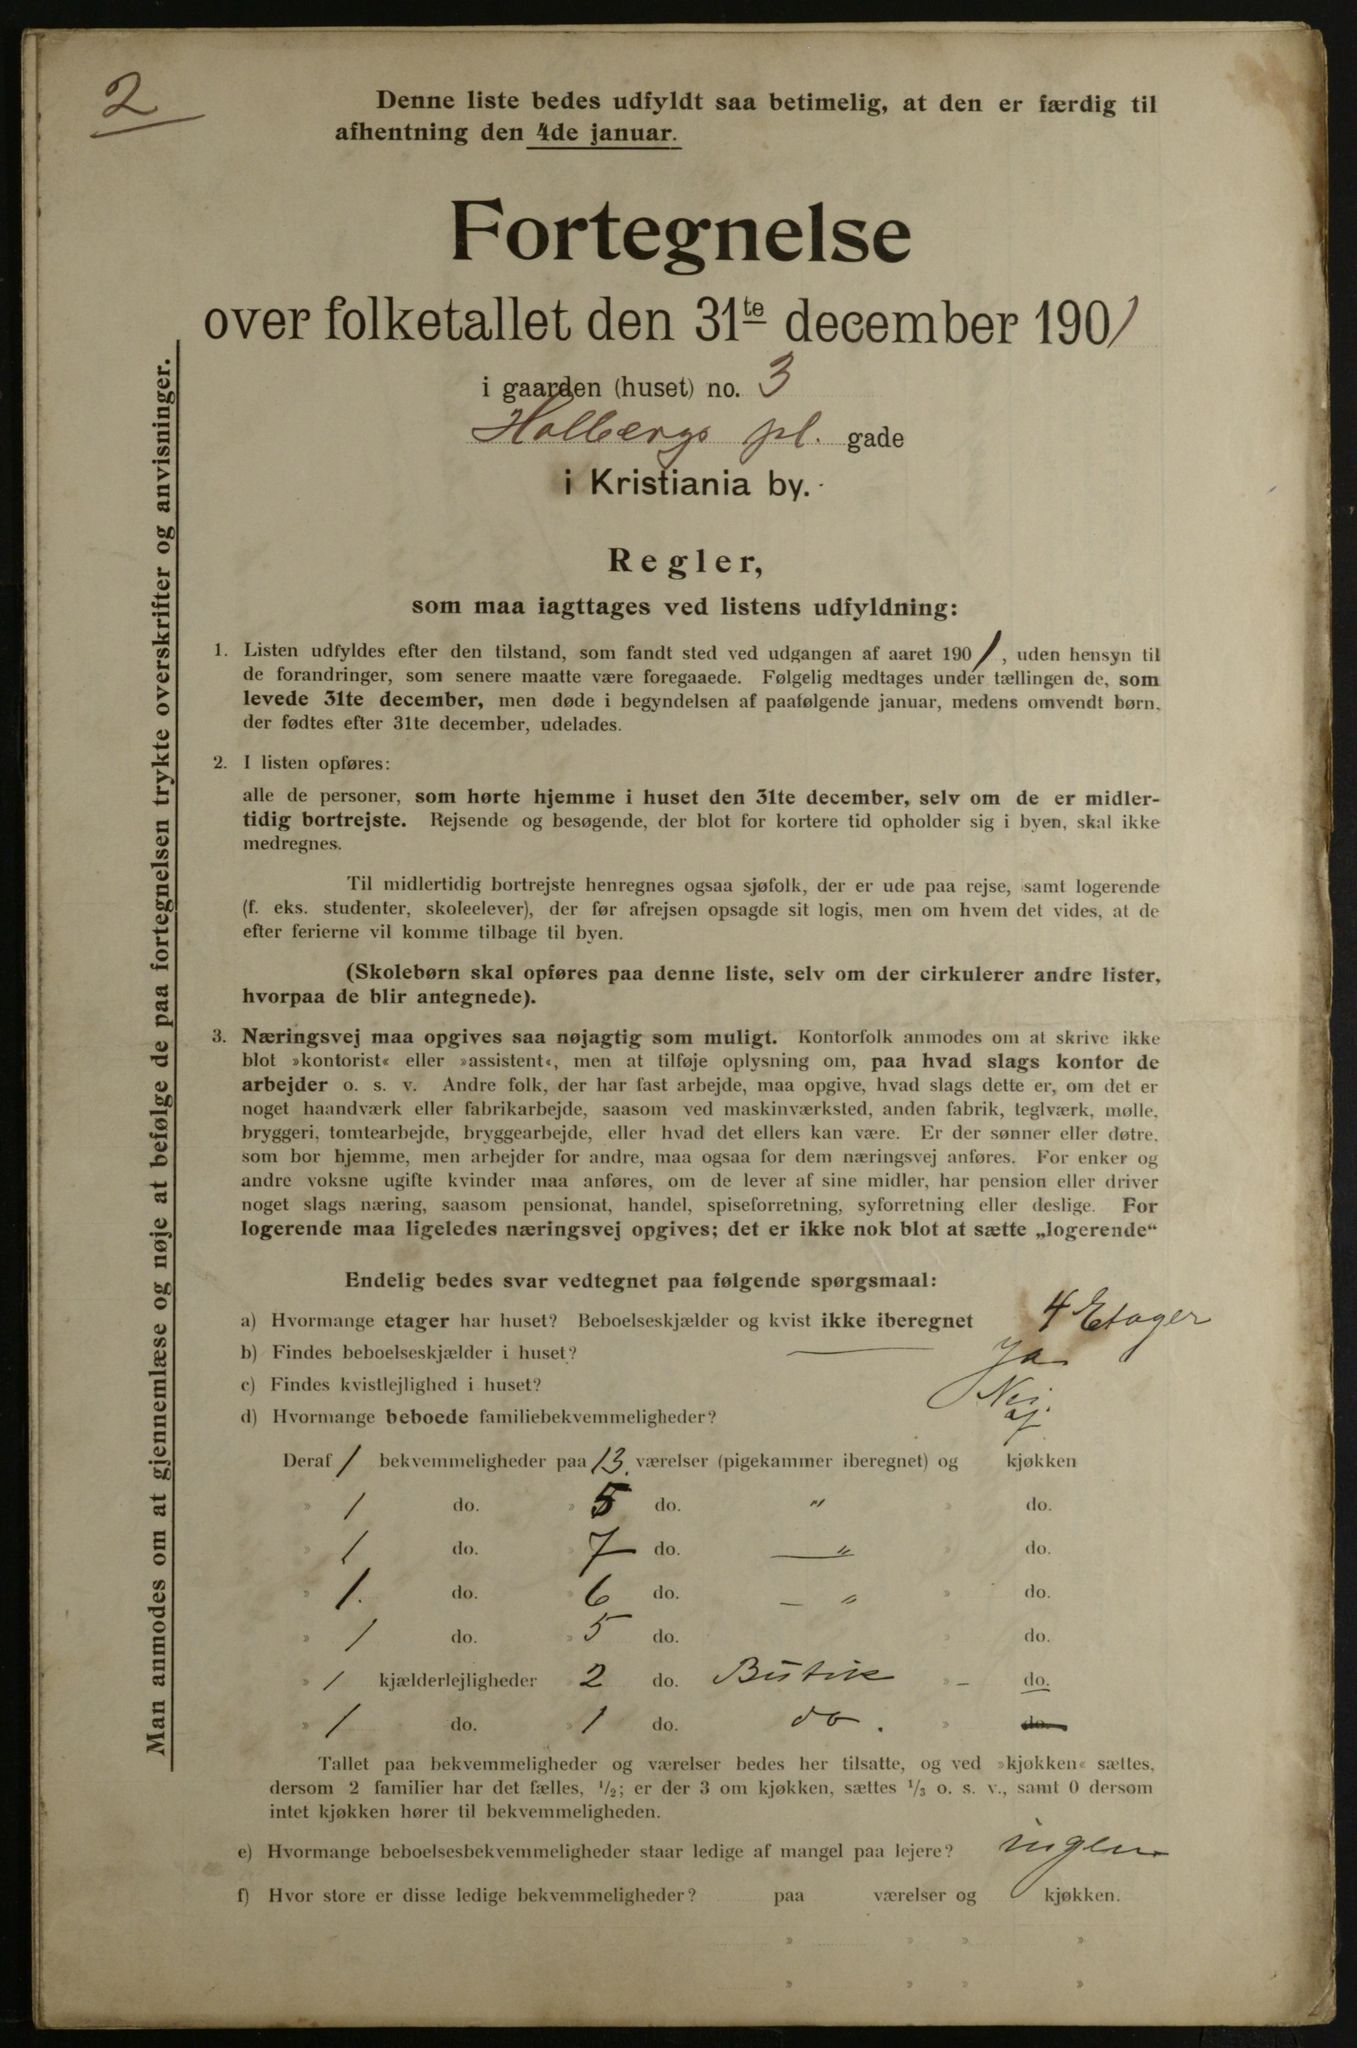 2
Denne liste bedes udfyldt saa betimelig, at den er færdig til
afhentning den 4de januar.
Fortegnelse
over folketallet den 31te december 1901
i gaarden (huset) no. 3
Holbergs pl. gade
i Kristiania by.
Regler,
som maa iagttages ved listens udfyldning:
1. Listen udfyldes efter den tilstand, som fandt sted ved udgangen af aaret 1901, uden hensyn til
de forandringer, som senere maatte være foregaaede. Følgelig medtages under tællingen de, som
levede 31te december, men døde i begyndelsen af paafølgende januar, medens omvendt børn,
der fødtes efter 31te december, udelades.
2. I listen opføres:
alle de personer, som hørte hjemme i huset den 31te december, selv om de er midler-
tidig bortrejste. Rejsende og besøgende, der blot for kortere tid opholder sig i byen, skal ikke
medregnes.
Til midlertidig bortrejste henregnes ogsaa sjøfolk, der er ude paa rejse, samt logerende
(f. eks. studenter, skoleelever), der før afrejsen opsagde sit logis, men om hvem det vides, at de
efter ferierne vil komme tilbage til byen.
(Skolebørn skal opføres paa denne liste, selv om der cirkulerer andre lister,
hvorpaa de blir antegnede).
3. Næringsvej maa opgives saa nøjagtig som muligt. Kontorfolk anmodes om at skrive ikke
blot »kontorist« eller »assistent«, men at tilføje oplysning om, paa hvad slags kontor de
arbejder o. s. v. Andre folk, der har fast arbejde, maa opgive, hvad slags dette er, om det er
noget haandværk eller fabrikarbejde, saasom ved maskinværksted, anden fabrik, teglværk, mølle,
bryggeri, tomtearbejde, bryggearbejde, eller hvad det ellers kan være. Er der sønner eller døtre,
som bor hjemme, men arbejder for andre, maa ogsaa for dem næringsvej anføres. For enker og
andre voksne ugifte kvinder maa anføres, om de lever af sine midler, har pension eller driver
noget slags næring, saasom pensionat, handel, spiseforretning, syforretning eller deslige. For
logerende maa ligeledes næringsvej opgives; det er ikke nok blot at sætte „logerende“
Endelig bedes svar vedtegnet paa følgende spørgsmaal:
a) Hvormange etager har huset? Beboelseskjælder og kvist ikke iberegnet 4 Etager
b) Findes beboelseskjælder i huset? Ja
c) Findes kvistlejlighed i huset? Nei.
d) Hvormange beboede familiebekvemmeligheder?
Deraf 1 bekvemmeligheder paa 13. værelser (pigekammer iberegnet) og kjøkken
» 1 do. » 5 do. " » do.
» 1 do. » 7 do. — " » do.
» 1. do. » 6 do. — " » do.
» 1 do. » 5 do. » do.
» 1 kjælderlejligheder 2 do. Butik » - do.
» 1 do. » 1 do. do. » do.
Tallet paa bekvemmeligheder og værelser bedes her tilsatte, og ved »kjøkken« sættes,
dersom 2 familier har det fælles, 1/2; er der 3 om kjøkken, sættes 1/3 o. s. v., samt 0 dersom
intet kjøkken hører til bekvemmeligheden.
e) Hvormange beboelsesbekvemmeligheder staar ledige af mangel paa lejere? ingen
f) Hvor store er disse ledige bekvemmeligheder? paa værelser og kjøkken.
» » » »
» » » »
Man anmodes om at gjennemlæse og nøje at befølge de paa fortegnelsen trykte overskrifter og anvisninger.